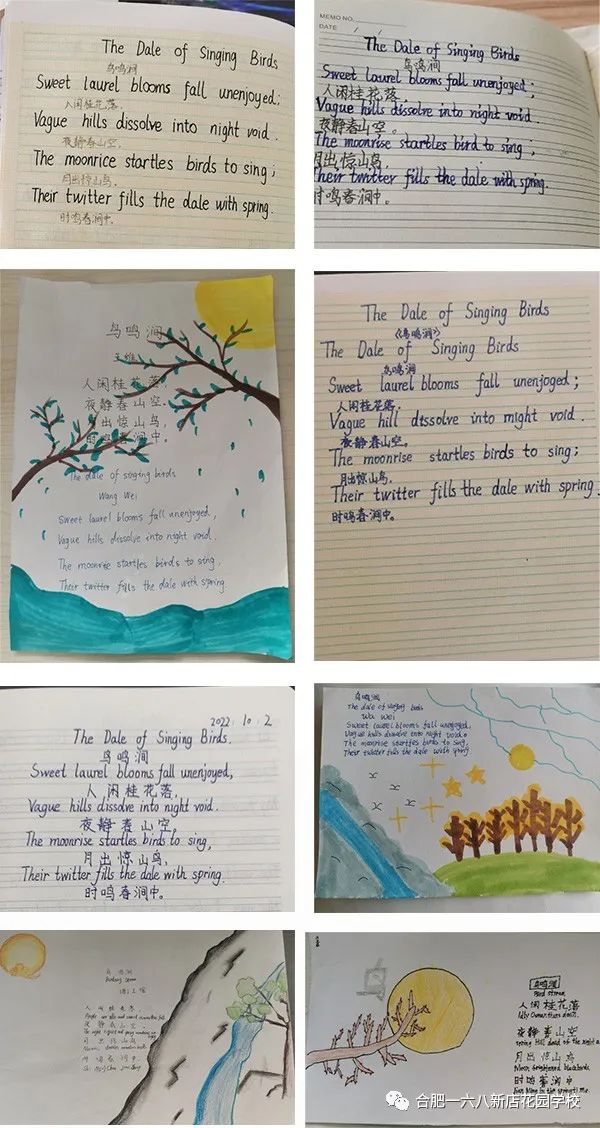 The Dale of Singing Birds
鸟鸣涧
Sweet laurel blooms fall unenjoyed;
人闲桂花落,
Vague hills dissolve into night void.
夜静春山空.
The moonrice startles birds to sing;
月出惊山鸟,
Their twitter fills the dale with spring.
时鸣春涧中.
MEMO NO.
DATE / /
The Dale of Singing Birds
鸟鸣涧
Sweet laurel blooms fall unenjoyed;
人闲桂花落
Vague hills dissolve into night void.
夜静春山空。
The moonrise startles bird to sing
月出惊山鸟
Their twitter fills the dale with spring.
时鸣春涧中。
鸟鸣涧
王维
人闲桂花落,
夜静春山空
月出惊山鸟,
时鸣春涧中。
The dale of singing birds
Wang Wei
Sweet laurel blooms fall unenjoyed,
Vague hills dissolve into night void.
The moonrise startles birds to sing,
Their twitter fills the dale with spring.
The Dale of Singing Birds
《鸟鸣涧》
The Dale of Singing Birds
鸟鸣涧
Sweet laurel blooms fall unenjoged;
人闲桂花落,
Vague hill dtssolve into might void
夜静春山空。
The moonrise startles birds to sing;
月出惊山鸟,
Their twitter fills the dale with spring.
时鸣春涧中。
2022. 10. 2
The Dale of Singing Birds.
鸟鸣涧
Sweet laurel blooms fall unenjoyed,
人闲桂花落,
Vague hills dissolve into night void.
夜静春山空,
The moonrise startles birds to sing,
月出惊山鸟,
Their twitter fills the dale with spring.
时鸣春涧中。
鸟鸣涧
The dale of singing birds
Wa Wei
Sweet laurel blooms fall unenjoyed,
Vague hills dissolve into night void.
The moonrise startles birds to sing,
Their twitter fills the dale with spring
鸟鸣涧
王维
人闲桂花落
夜静春山空
月出惊山鸟
时鸣春涧中
鸟鸣涧
Bird stream
人闲桂花落
夜静春山空
Spring Hill dead of the night
月出惊山鸟
Moon frightened blackbirds
时鸣春涧中
in the spring time.
合肥一六八新店花园学校